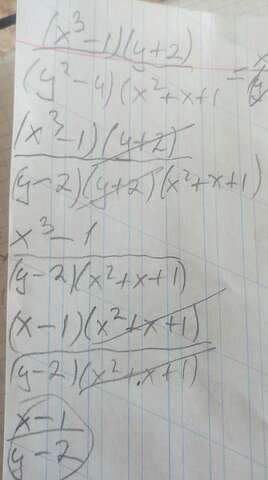 (x³-1)(y+2)
(y²-4)(x²+x+1 = x
(x³-1)(y+2)
(y-2)(y+2)(x²+x+1)
x³-1
(y-2)(x²+x+1)
(x-1)(x²+x+1)
(y-2)(x²+x+1)
x-1
y-2